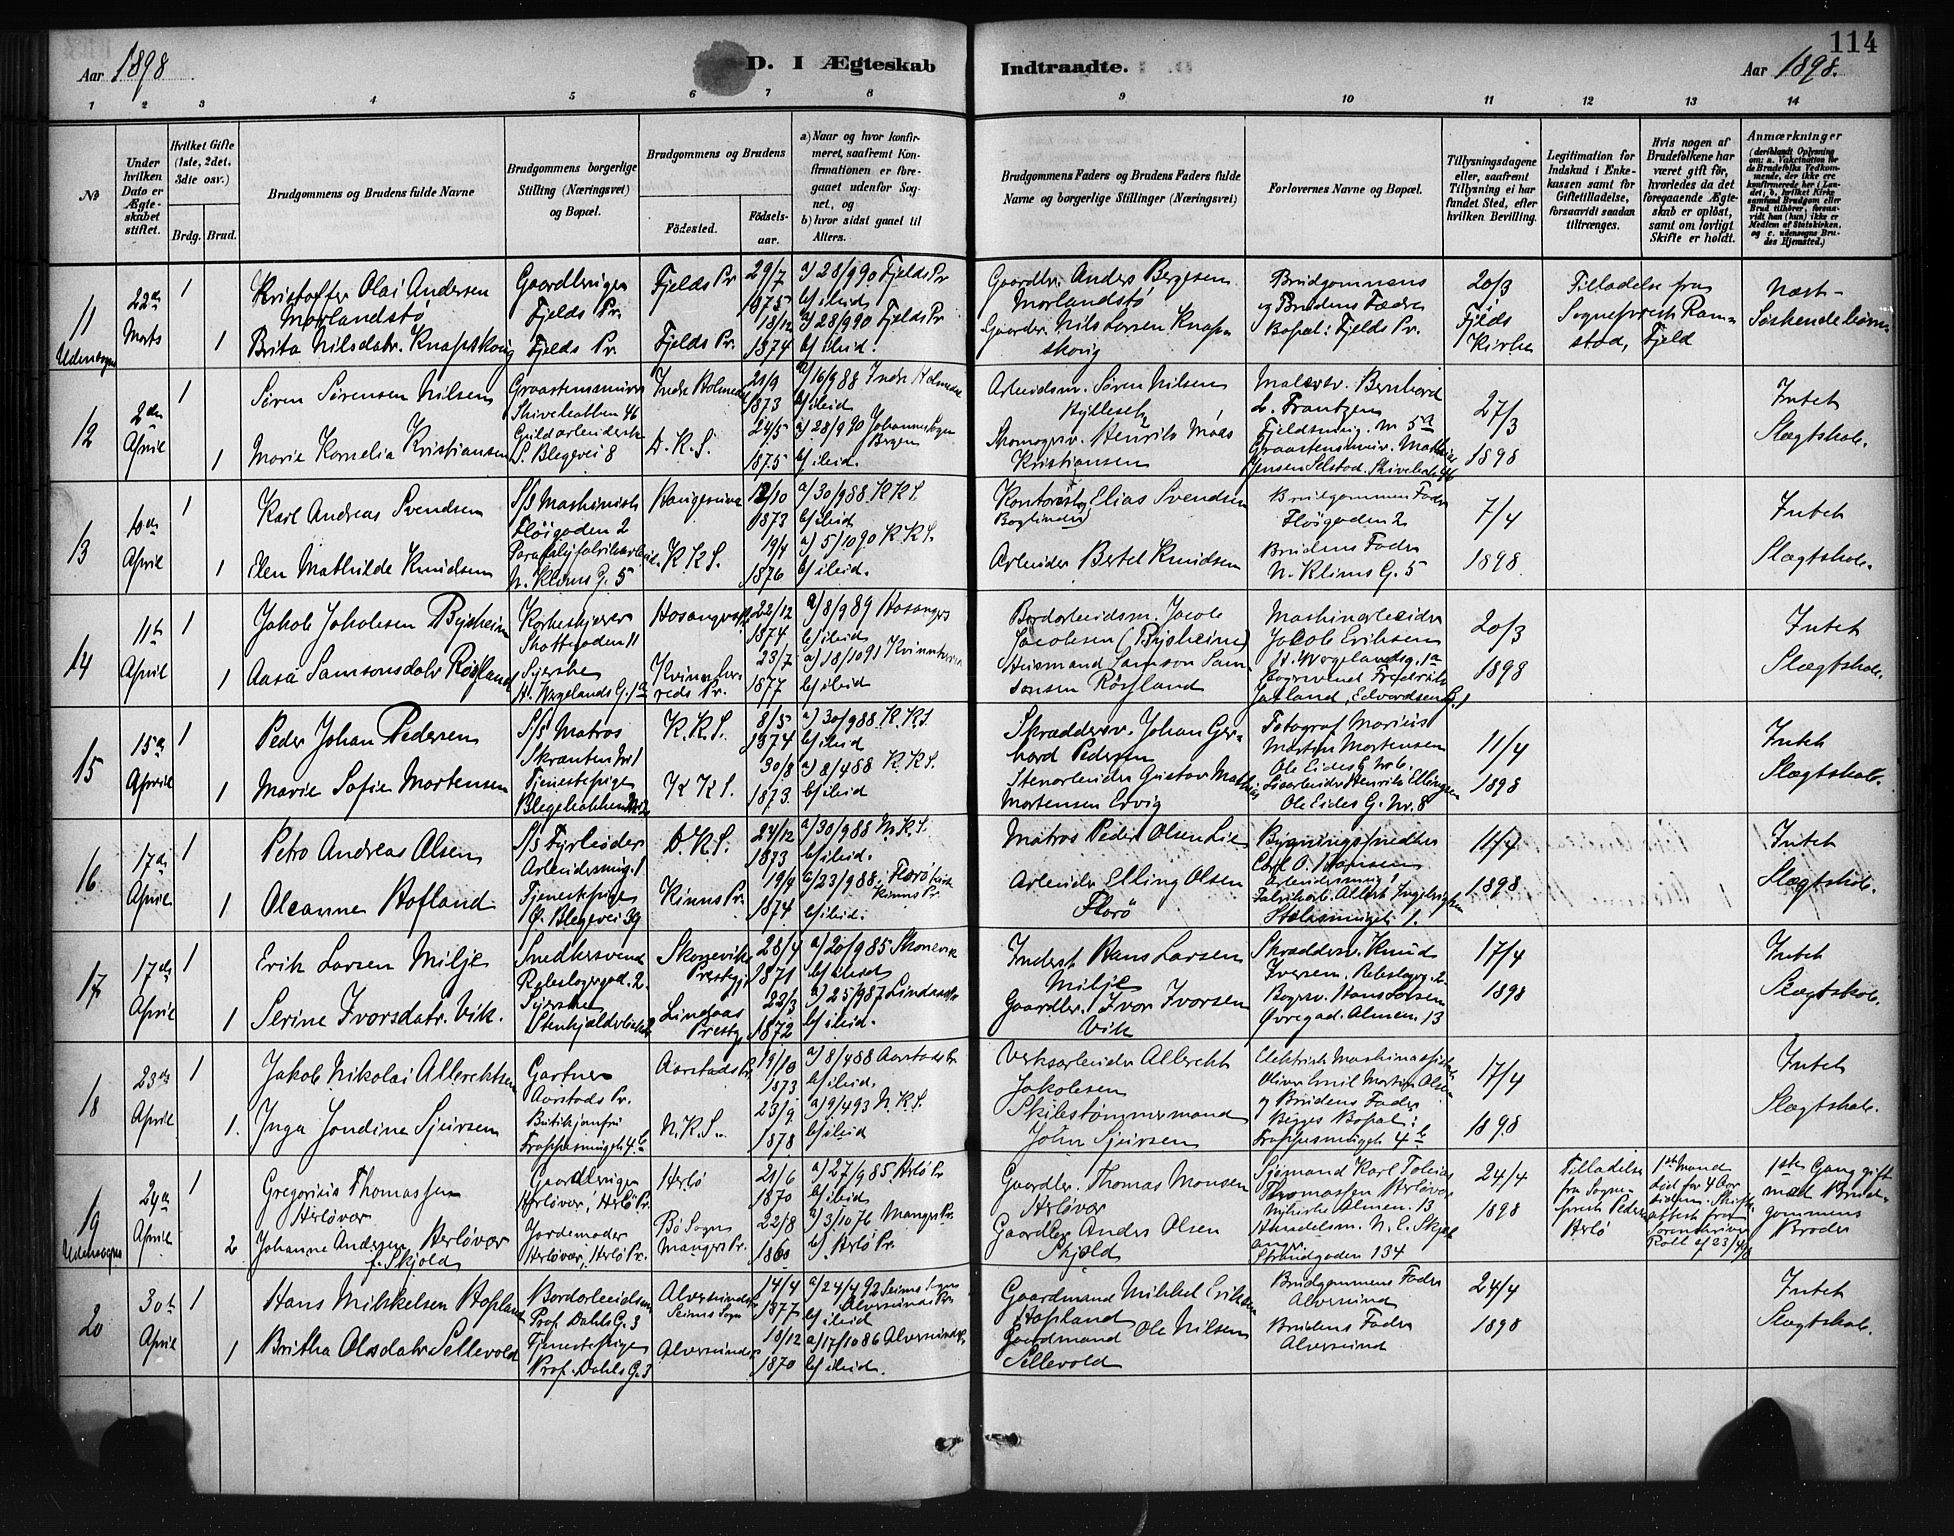 114
Aar 1898
D. I Ægteskab Indtraadte.
Aar 1898.
1 2 3 4 5 6 7 8 9 10 11 12 13 14
No
Under hvilken Dato er Ægteskabet stiftet.
Hvilket Gifte (1ste, 2det, 3die osv.)
Brdg. Brud.
Brudgommens og Brudens fulde Navne
Brudgommens borgerlige Stilling (Næringsvei) og Bopæl.
Brudgommens og Brudens
Fødested.
Fødselsaar.
a) Naar og hvor konfirmeret, saafremt Konfirmationen er foregaaet udenfor Sognet, og
b) hvor sidst gaaet til Alters.
Brudgommens Faders og Brudens Faders fulde Navne og borgerlige Stillinger (Næringsvei)
Forlovernes Navne og Bopæl.
Tillysningsdagene eller, saafremt Tillysning ei har fundet Sted, efter hvilken Bevilling.
Legitimation for Indskud i Enkekassen samt for Giftetilladelse, forsaavidt saadan tiltrænges.
Hvis nogen af Brudefolkene har været gift før, hvorledes da det foregaaende Ægteskab er opløst, samt om lovligt Skifte er holdt.
Anmærkninger (deriblandt Oplysning om: a. Vakcination for de Brudefolks Vedkommende, der ikke ere konfirmerede her i Landet; b. hvilket Kirkesamfund Brudgom eller Brud tilhører, forsaavidt han (hun) ikke er Medlem af Statskirken, og c. udensogns Brudes Hjemsted.)
11
Udensogns
22de Marts
1
Kristoffer Olai Andersen Morlandstø
Gaardbruger Fjelds Pr.
Fjelds Pr
29/7 1875
a) 28/9 90 Fjelds Pr
b) ibid
Gaardbr. Anders Bergesen Morlandstø
Brudgommens og Brudens Fædre
Bopæl: Fjelds Pr.
20/3
Fjelds Kirke
Tilladelse fra Sogneprest Ramstad, Fjeld
Næst-Søskendebørn
1
Brita Nilsdatr. Knapskog
Fjelds Pr
Fjelds Pr.
18/12 1874
a) 28/9 90 Fjelds Pr
b) ibid.
Gaardbr. Nils Larsen Knapskog
12
2den April
1
Søren Sørensen Nilsen
Skivebakken 46
Indre Holmedal
21/9 1873
a) 16/9 88 Indre Holmedal
b) ibid
Arbeidsm. Søren Nilsen
Malersv. Bernhard L. Frantzen
Fjeldsmug. Nr 5a
27/3 1898
Intet Slægtskab.
1
Marie Kornelia Kristiansen
D. Blegevei 8
D.K.S.
24/5 1875
a) 28/9 90 Johannes Sogn Bergen
b) ibid.
Skomagersv. Henrik Moes Kristiansen
13
10de April
1
Karl Andreas Svendsen
S/S Maskinist
Fløigaden 2
12/10 1873
a) 30/9 88 K.K.S.
b) ibid
Elias Svendsen
Brudgommens Fader
Fløigaden 2
7/4 1898
Intet Slægtskab.
1
Elen Mathilde Knudsen
N. Klims G. 5
K.K.S.
19/4 1876
a) 5/10 90 K.K.S.
b) ibid.
Arbeider Bertel Knudsen
Brudens Fader
N. Klims G. 5
14
11te April
1
Jakob Jakobsen Bysheim
Korkeskjærer
Skottegaden 11
22/12 1874
a) 8/9 89 Hosanger
b) ibid.
Bordarbeidsm. Jacob Jacobsen (Bysheim)
Maskinarbeider Jakob Eriksen
H. Wergelandsg. 1a
20/3 1898
Intet Slægtskab.
1
Aasa Samsonsdatr Røsland
Syerske
H. Wergelands G. 1a
Kvinnherreds Pr.
23/7 1877
a) 18/10 91 Kvinnherred
b) ibid
Husmand Samson Samsonsen Røsland
15
15de April
1
Peder Johan Pedersen
S/S Matros
Skranten Nr 1
K.K.S.
8/5 1874
a) 30/9 88 K.K.S.
b) ibid
Skræddersv. Johan Gerhard Pedersen
Fotograf Marius Martin Mortensen
Ole Eides G. Nr 6.
11/4 1898
Intet Slægtskab.
1
Marie Sofie Mortensen
Tjenestepige
K.K.S.
30/8 1873.
a) 8/4 88 K.K.S.
b) ibid
Stenarbeider Gustav Mathias Mortensen Ervig
Henrik Ellingsen
Ole Eides G. Nr. 8
16
17de April
1
Petro Andreas Olsen
S/S Fyrbøder
Arbeidersmug. 1
D.K.S.
27/12 1873
a) 30/9 88 N.K.S.
b) ibid.
Matros Peder Olsen Lie
Bygningssnedker Carl O. Hansen
Arbeidersmug 1
11/4 1898
Intet Slægtskab.
1
Oleanne Hofland
Tjenestepige
Ø. Blegevei 39
Kinns Pr.
19/9 1874
a) 23/9 88 Florø Kinns Pr.
b) ibid.
Arbeider Elling Olsen Florø
Fabrikarb. Albert Ingebrigtsen
Stølesmuget 1.
17
17de April
1
Erik Larsen Milje
Snedkersvend
Rebslagergad. 2.
Skonevik Prestegj.
28/4 1871
a) 20/9 85 Skonevik
b) ibid
Inderst Hans Larsen Milje
Skræddersv. Knud Iversen, Rebslagerg. 2.
17/4 1898
Intet Slægtskab.
1
Serine Ivarsdatr. Vik.
Syerske
Lindaas Prestg.
22/3 1872
a) 25/9 87 Lindaas Pr
b) ibid.
Gaardbr. Ivar Ivarsen Vik
Øvregad. Almen. 13
18
23de April
1
Jakob Nikolai Albrektsen
Gartner
Aarstads Pr.
Aarstads Pr
19/10 1873
a) 8/4 88 Aarstads Pr
b) ibid.
Verksarbeider Albrekt Jakobsen
Oliver Emil Martin Olsen
og Brudens Fader
Begges Bopæl:
Trappesmuget 4b
17/4 1898
Intet Slægtskab.
1.
Inga Jondine Sjursen
Butikjomfru
Trappesmuget 4b
N.K.S.
23/9 1878
a) 9/4 93 N.K.S.
b) ibid
Skibstømmermand John Sjursen
19
Udensogns
24de April
1
Gregorius Thomassen Herløvær
Gaardbruger
Herløvær, Herlø Pr.
Herlø
21/6 1870
a) 27/9 85 Herlø Pr
b) ibid
Gaardbr. Thomas Monsen Herløvær
Sjømand Karl Tobias Thomassen Herløvær
24/4 1898
Tilladelse fra Sogneprest Peder Herlø
1ste Mand død for 4 Aar siden. Skifteattest fra Sorenskriver
1ste Gang gift med Brudgommens Broder
2
Johanne Andersen Herløvær f. Skjold
Jordemoder
Herløvær, Herlø Pr.
Bø Sogn Mangers Pr.
22/8 1860
a) 3/10 76 Mangers Pr.
b) Herlø Pr.
Gaardbr Anders Olsen Skjold
Strandgaden 134
20
30te April
1
Hans Mikkelsen Hopland
Bordarbeidsm
Prof. Dahls G. 3
Alversund
Seims Sogn
14/4 1877
a) 24/4 92 Seims Sogn Alversunds Pr
b) ibid
Gaardmand Mikkel Eriksen Hopland
Brudgommens Fader
Alversund
24/4 1898
Intet Slægtskab.
1
Britha Olsdatr Sellevold
Tjenestepige
Prof. Dahls G. 3
Alversund
18/12 1870
a) 17/10 86 Alversund
b) ibid.
Gaardmand Ole Nilsen Sellevold
Brudens Fader
Alversund